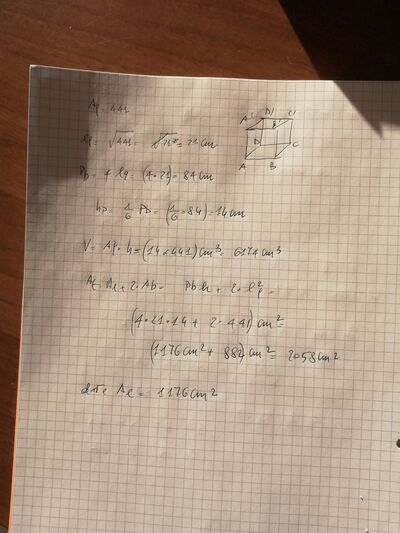 Ap = 441
D' C'
A' B'
lq = √441 = √21² = 21 cm
D C
A B
Pb = 4 lq = (4·21) = 84 cm
hp = 1/6 Pb = (1/6 · 84) = 14 cm
V = Ap · h = (14 × 441) cm³ = 6174 cm³
At = Al + 2·Ab = Pb·h + 2·l²q =
(4·21·14 + 2·441) cm² =
(1176 cm² + 882) cm² = 2058 cm²
Al = 1176 cm²